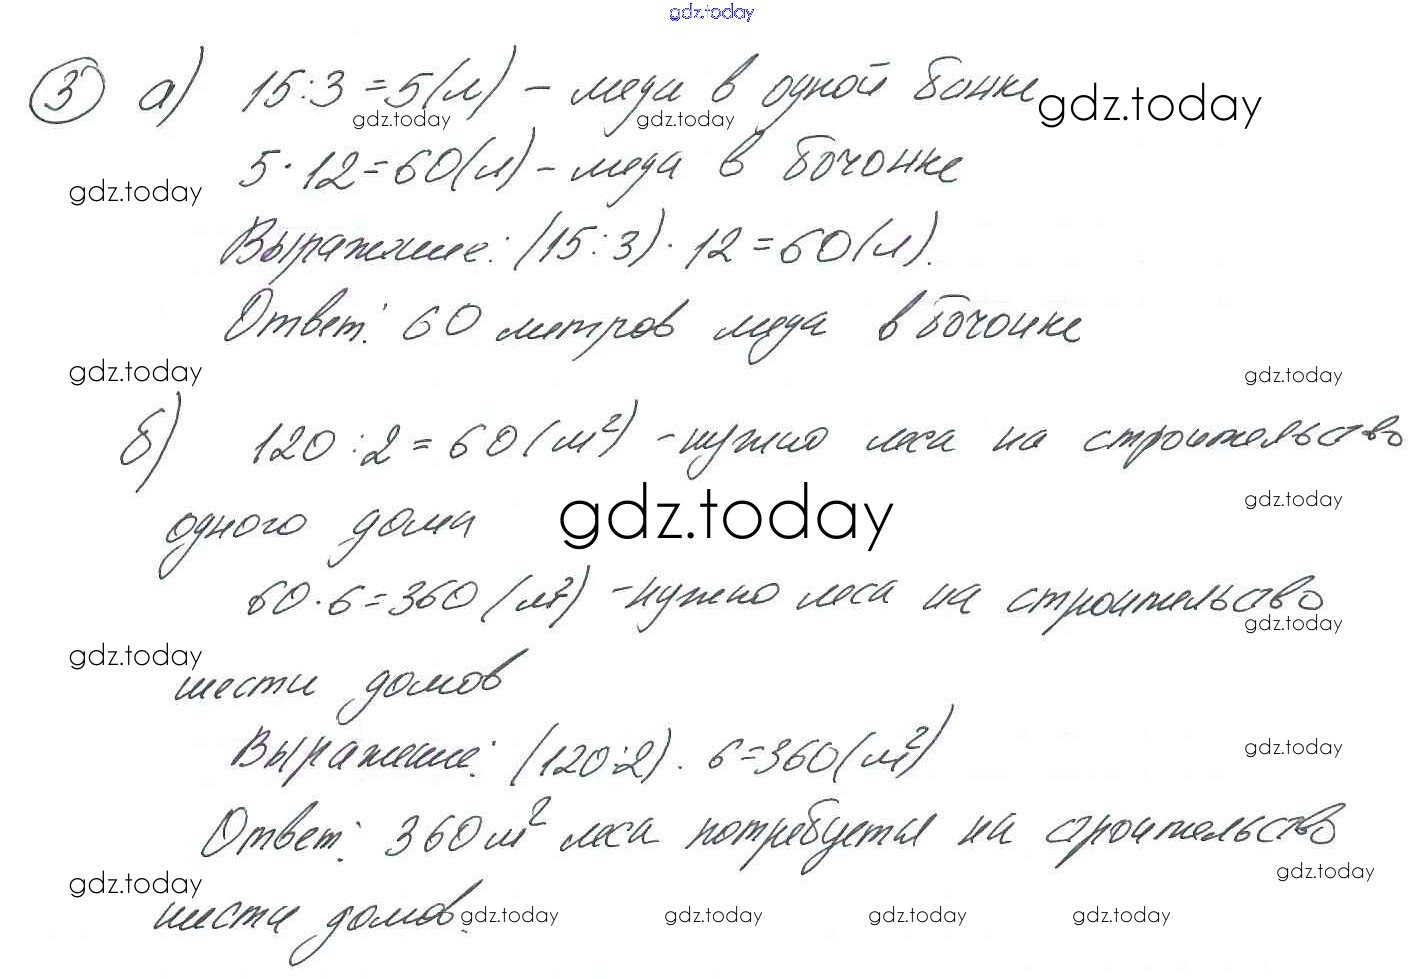 gdz.today
3 а) 15:3=5(л) – меда в одной банке gdz.today
gdz.today gdz.today
5·12=60(л) – меда в бочонке
gdz.today
Выражение: (15:3)·12=60(л).
Ответ: 60 метров меда в бочонке
gdz.today gdz.today
б) 120:2=60(м²) – нужно леса на строительство
gdz.today
одного дома gdz.today
60·6=360(м²) – нужно леса на строительство
gdz.today
gdz.today
шести домов
Выражение: (120:2)·6=360(м²)
gdz.today
Ответ: 360м² леса потребуется на строительство
gdz.today gdz.today
шести домов. gdz.today gdz.today gdz.today gdz.today